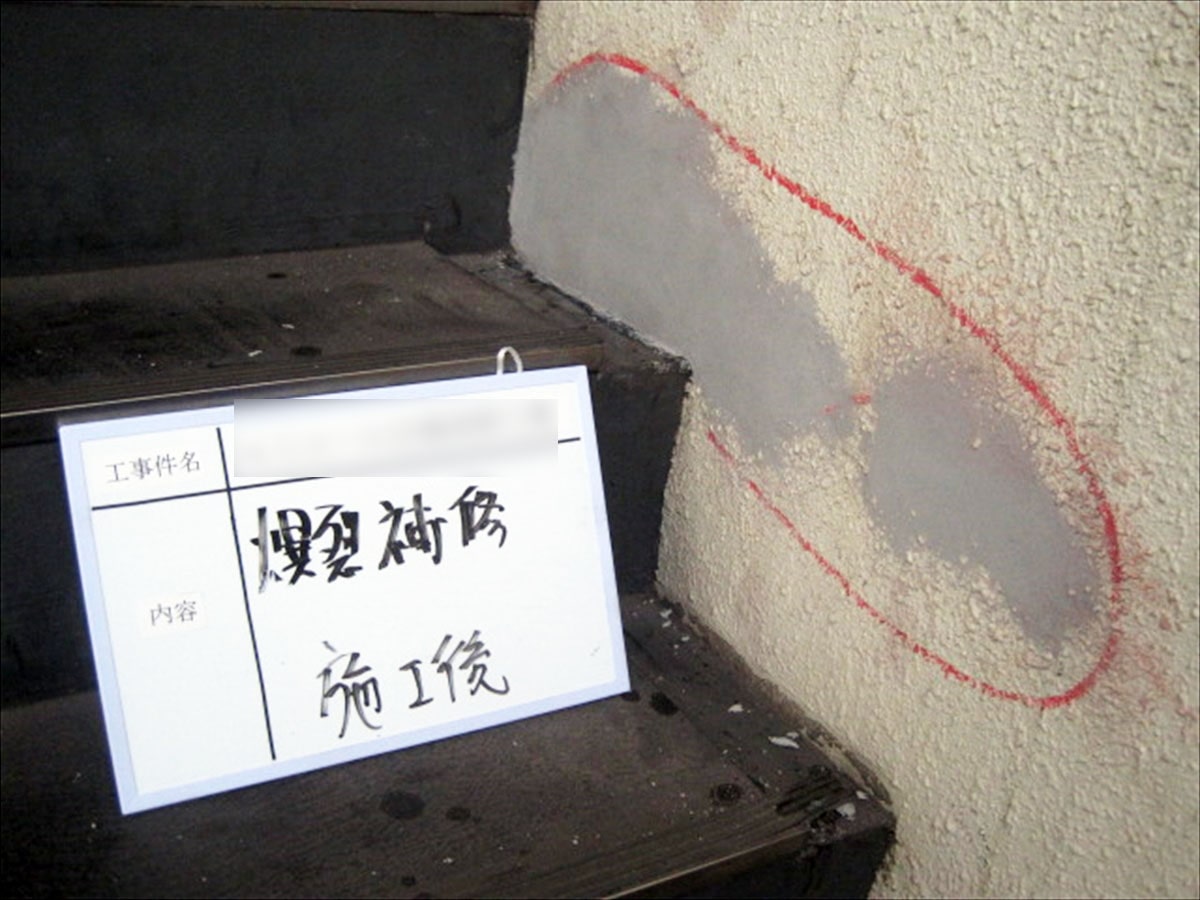 工事件名
内容
爆裂補修
施工後